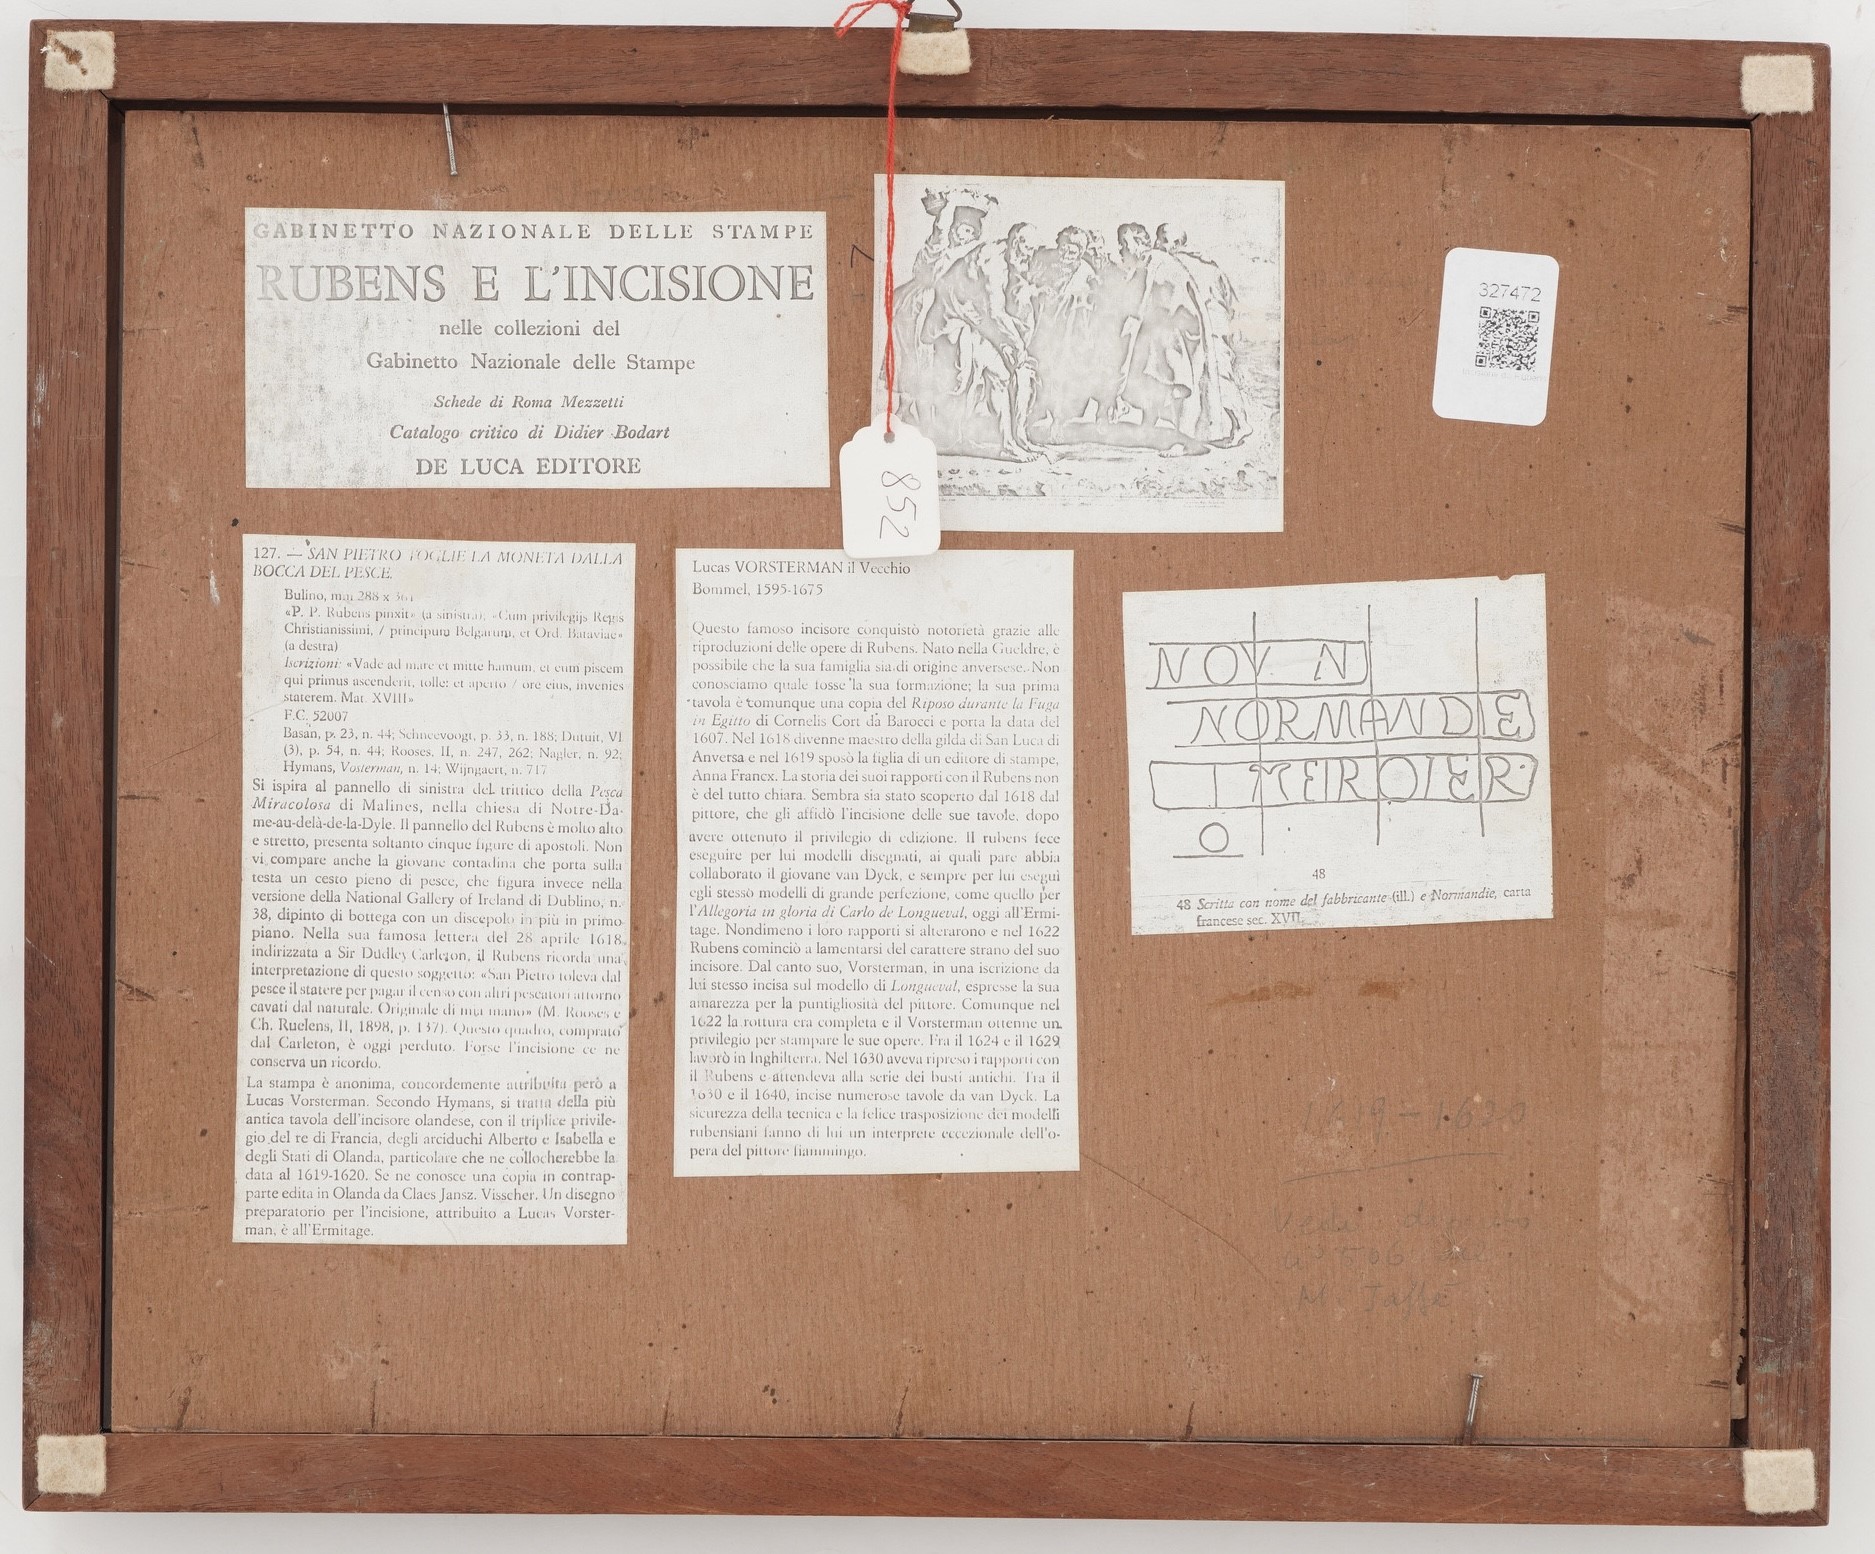 GABINETTO NAZIONALE DELLE STAMPE
RUBENS E L'INCISIONE
nelle collezioni del
Gabinetto Nazionale delle Stampe
Schede di Roma Mezzetti
Catalogo critico di Didier Bodart
DE LUCA EDITORE
7
852
327472
127. — SAN PIETRO TOGLIE LA MONETA DALLA
BOCCA DEL PESCE.
Bulino, mm 288 x
«P. P. Rubens pinxit» (a sinistra); «Cum privilegijs Regis
Christianissimi, / principum Belgarum, et Ord. Bataviae»
(a destra)
Iscrizioni: «Vade ad mare et mitte hamum, et eum piscem
qui primus ascenderit, tolle: et aperto / ore eius, invenies
staterem. Mat. XVIII»
F.C. 52007
Basan, p. 23, n. 44; Schneevoogt, p. 33, n. 188; Dutuit, VI
(3), p. 54, n. 44; Rooses, II, n. 247, 262; Nagler, n. 92;
Hymans, Vosterman, n. 14; Wijngaert, n. 717
Si ispira al pannello di sinistra del trittico della Pesca
Miracolosa di Malines, nella chiesa di Notre-Da-
me-au-delà-de-la-Dyle. Il pannello del Rubens è molto alto
e stretto, presenta soltanto cinque figure di apostoli. Non
vi compare anche la giovane contadina che porta sulla
testa un cesto pieno di pesce, che figura invece nella
versione della National Gallery of Ireland di Dublino, n.
38, dipinto di bottega con un discepolo in più in primo
piano. Nella sua famosa lettera del 28 aprile 1618,
indirizzata a Sir Dudley Carleton, il Rubens ricorda una
interpretazione di questo soggetto: «San Pietro toleva dal
pesce il statere per pagar il censo con altri pescatori attorno
cavati dal naturale. Originale di mia mano» (M. Rooses e
Ch. Ruelens, II, 1898, p. 137). Questo quadro, comprato
dal Carleton, è oggi perduto. Forse l'incisione ce ne
conserva un ricordo.
La stampa è anonima, concordemente attribuita però a
Lucas Vorsterman. Secondo Hymans, si tratta della più
antica tavola dell'incisore olandese, con il triplice privile-
gio del re di Francia, degli arciduchi Alberto e Isabella e
degli Stati di Olanda, particolare che ne collocherebbe la
data al 1619-1620. Se ne conosce una copia in contrap-
parte edita in Olanda da Claes Jansz. Visscher. Un disegno
preparatorio per l'incisione, attribuito a Lucas Vorster-
man, è all'Ermitage.
Lucas VORSTERMAN il Vecchio
Bommel, 1595-1675
Questo famoso incisore conquistò notorietà grazie alle
riproduzioni delle opere di Rubens. Nato nella Gueldre, è
possibile che la sua famiglia sia di origine anversese. Non
conosciamo quale fosse la sua formazione; la sua prima
tavola è comunque una copia del Riposo durante la Fuga
in Egitto di Cornelis Cort da Barocci e porta la data del
1607. Nel 1618 divenne maestro della gilda di San Luca di
Anversa e nel 1619 sposò la figlia di un editore di stampe,
Anna Francx. La storia dei suoi rapporti con il Rubens non
è del tutto chiara. Sembra sia stato scoperto dal 1618 dal
pittore, che gli affidò l'incisione delle sue tavole, dopo
avere ottenuto il privilegio di edizione. Il rubens fece
eseguire per lui modelli disegnati, ai quali pare abbia
collaborato il giovane van Dyck, e sempre per lui eseguì
egli stesso modelli di grande perfezione, come quello per
l'Allegoria in gloria di Carlo de Longueval, oggi all'Ermi-
tage. Nondimeno i loro rapporti si alterarono e nel 1622
Rubens cominciò a lamentarsi del carattere strano del suo
incisore. Dal canto suo, Vorsterman, in una iscrizione da
lui stesso incisa sul modello di Longueval, espresse la sua
amarezza per la puntigliosità del pittore. Comunque nel
1622 la rottura era completa e il Vorsterman ottenne un
privilegio per stampare le sue opere. Fra il 1624 e il 1629
lavorò in Inghilterra. Nel 1630 aveva ripreso i rapporti con
il Rubens e attendeva alla serie dei busti antichi. Tra il
1630 e il 1640, incise numerose tavole da van Dyck. La
sicurezza della tecnica e la felice trasposizione dei modelli
rubensiani fanno di lui un interprete eccezionale dell'o-
pera del pittore fiammingo.
NOV N
NORMANDIE
O
48
48 Scritta con nome del fabbricante (ill.) e Normandie, carta
francese sec. XVII.
1619-1620
Vedi disegno
n° 506 del
M. Jaffé